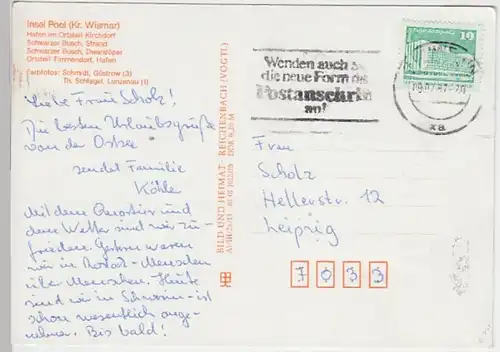 Insel Poel (Kr. Wismar)
Hafen im Ortsteil Kirchdorf
Schwarzer Busch, Strand
Schwarzer Busch, Zweratöper
Ortsteil Timmendorf, Hafen
Farbfotos: Schmidt, Güstrow (3)
Th. Schlegel, Lunzenau (1)
Liebe Frau Scholz!
Die besten Urlaubsgrüße
von der Ostsee
sendet Familie
Köhle
Mit dem Quartier und
dem Wetter sind wir zu-
frieden. Gestern waren
wir in Rostock - Menschen
über Menschen. Heute
sind wir in Schwerin - ist
schon wesentlich ange-
nehmer. Bis bald!
BILD UND HEIMAT REICHENBACH (VOGTL)
Wenden auch
die neue Form der
Postanschrift
an!
10
xa
Frau
Scholz
Hellerstr. 12
Leipzig
7033